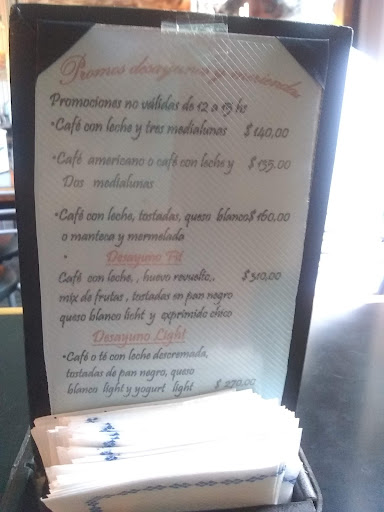 Promos desayunos y meriendas
Promociones no válidas de 12 a 15 hs
•Café con leche y tres medialunas $ 140,00
•Café americano o café con leche y $ 135.00
Dos medialunas
•Café con leche, tostadas, queso blanco$ 160,00
o manteca y mermelada
• Desayuno Fit
Café con leche, , huevo revuelto,, $ 310,00
mix de frutas , tostadas en pan negro
queso blanco licht y exprimido chico
Desayuno Light
•Café o té con leche descremada,
tostadas de pan negro, queso
blanco light y yogurt light $ 270,00